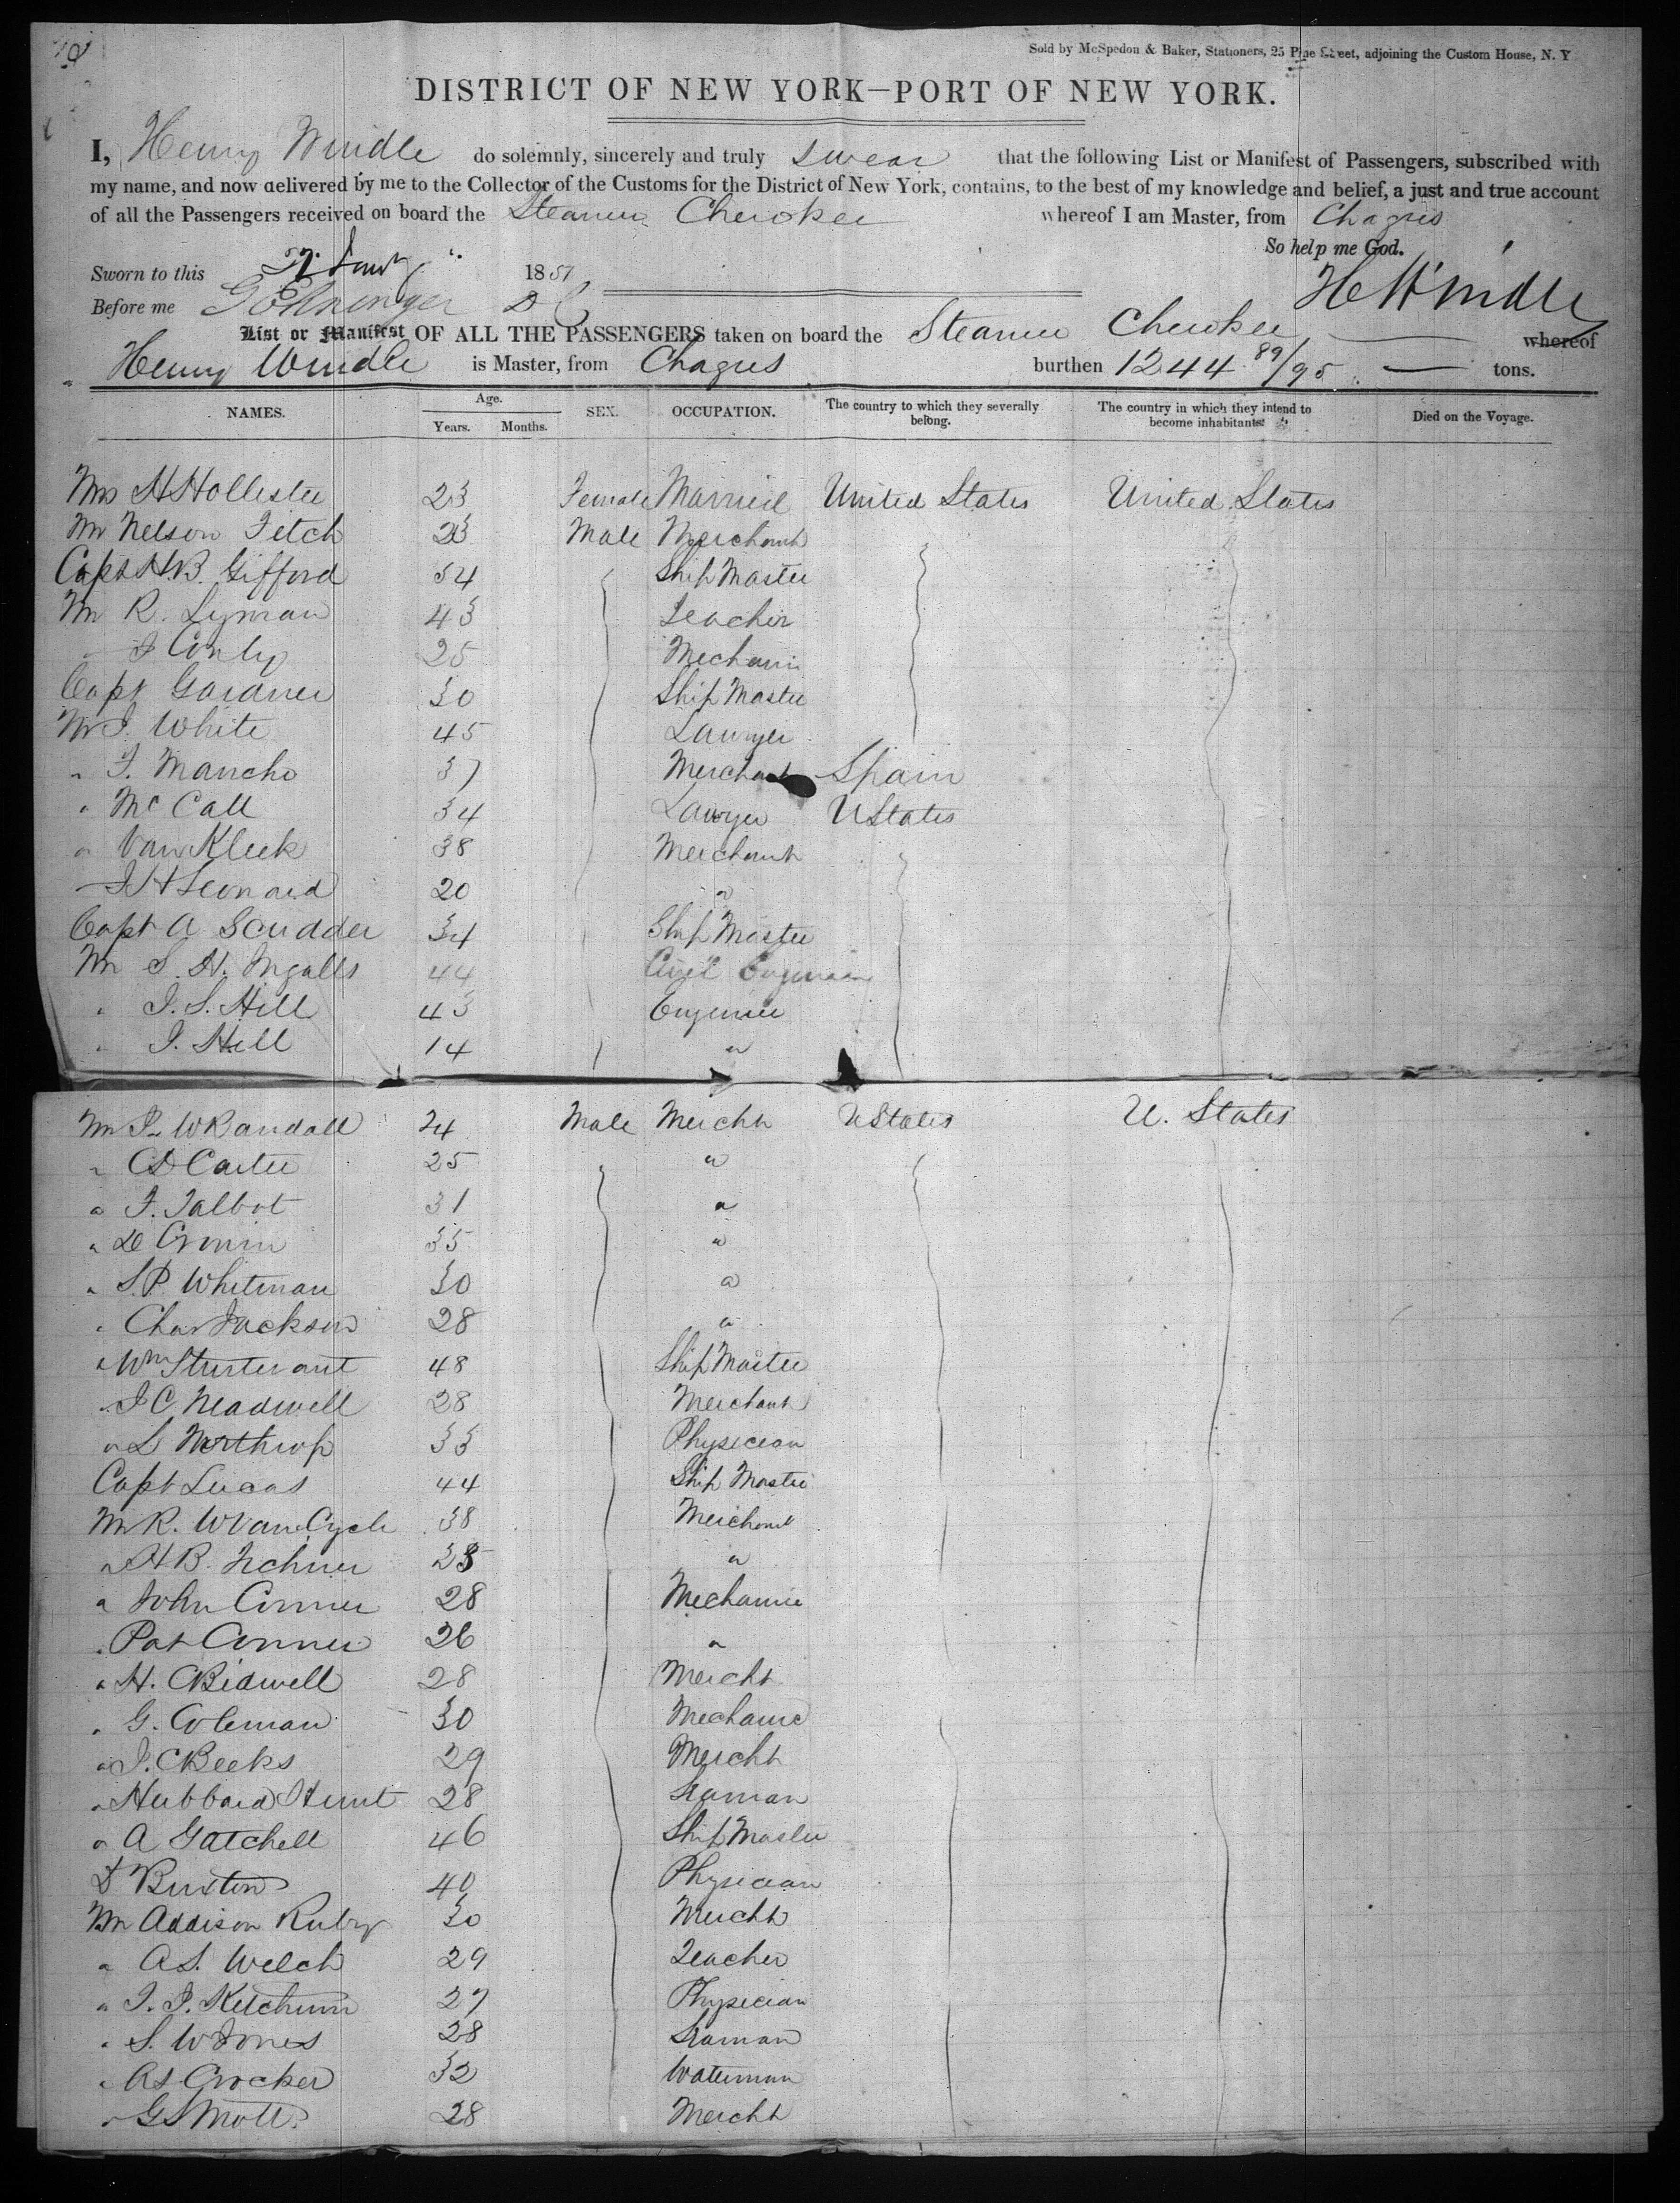 Sold by McSpedon & Baker, Stationers, 25 Pine Street, adjoining the Custom House, N. Y
DISTRICT OF NEW YORK—PORT OF NEW YORK.
I, Henry Windle do solemnly, sincerely and truly swear that the following List or Manifest of Passengers, subscribed with
my name, and now delivered by me to the Collector of the Customs for the District of New York, contains, to the best of my knowledge and belief, a just and true account
of all the Passengers received on board the Steamer Cherokee whereof I am Master, from Chagres
So help me God.
Sworn to this 1851
H Windle
Before me
List or Manifest OF ALL THE PASSENGERS taken on board the Steamer Cherokee whereof
Henry Windle is Master, from Chagres burthen 1244 89/95 tons.
NAMES. Age. Years. Months. SEX. OCCUPATION. The country to which they severally belong. The country in which they intend to become inhabitants. Died on the Voyage.
Mrs H Hollister 23 Female Married United States United States
Mr Nelson Fitch 23 Male Merchant
Capt H.B. Gifford 34 Ship Master
Mr R. Lyman 43 Teacher
J Conly 25 Mechanic
Capt Gardner 30 Ship Master
Mr J. White 45 Lawyer
" F. Mancho 37 Merchant Spain
" Mc Call 34 Lawyer U States
" Van Kleek 38 Merchant
J H Leonard 20 "
Capt A Scudder 34 Ship Master
Mr S. H. Ingalls 44 Civil Engineer
" J. S. Hill 43 Engineer
" J. Hill 14 "
Mr J. W Randall 24 Male Mercht U States U. States
" C D Carter 25 "
" F. Talbot 31 "
" 35 "
" S.P. Whitman 30 "
" Chas Jackson 28 "
" Wm Sturtevant 48 Ship Master
" J C Meadwell 28 Merchant
" L Northrop 33 Physician
Capt Lucas 44 Ship Master
Mr R. W Van Cycle 38 Merchant
" H B. 25 "
" John Conner 28 Mechanic
" Pat Conner 26 "
" H. C Bidwell 28 Mercht
" G. Coleman 30 Mechanic
" J. C Beeks 29 Mercht
" Hubbard Hunt 28 Seaman
" A Gatchell 46 Ship Master
Dr Buxton 40 Physician
Mr Addison Ruby 30 Mercht
" A S. Welch 29 Teacher
" J. J. Ketchum 27 Physician
" S. W Jones 28 Seaman
" As Crocker 32 Waterman
" G S Mott 28 Mercht